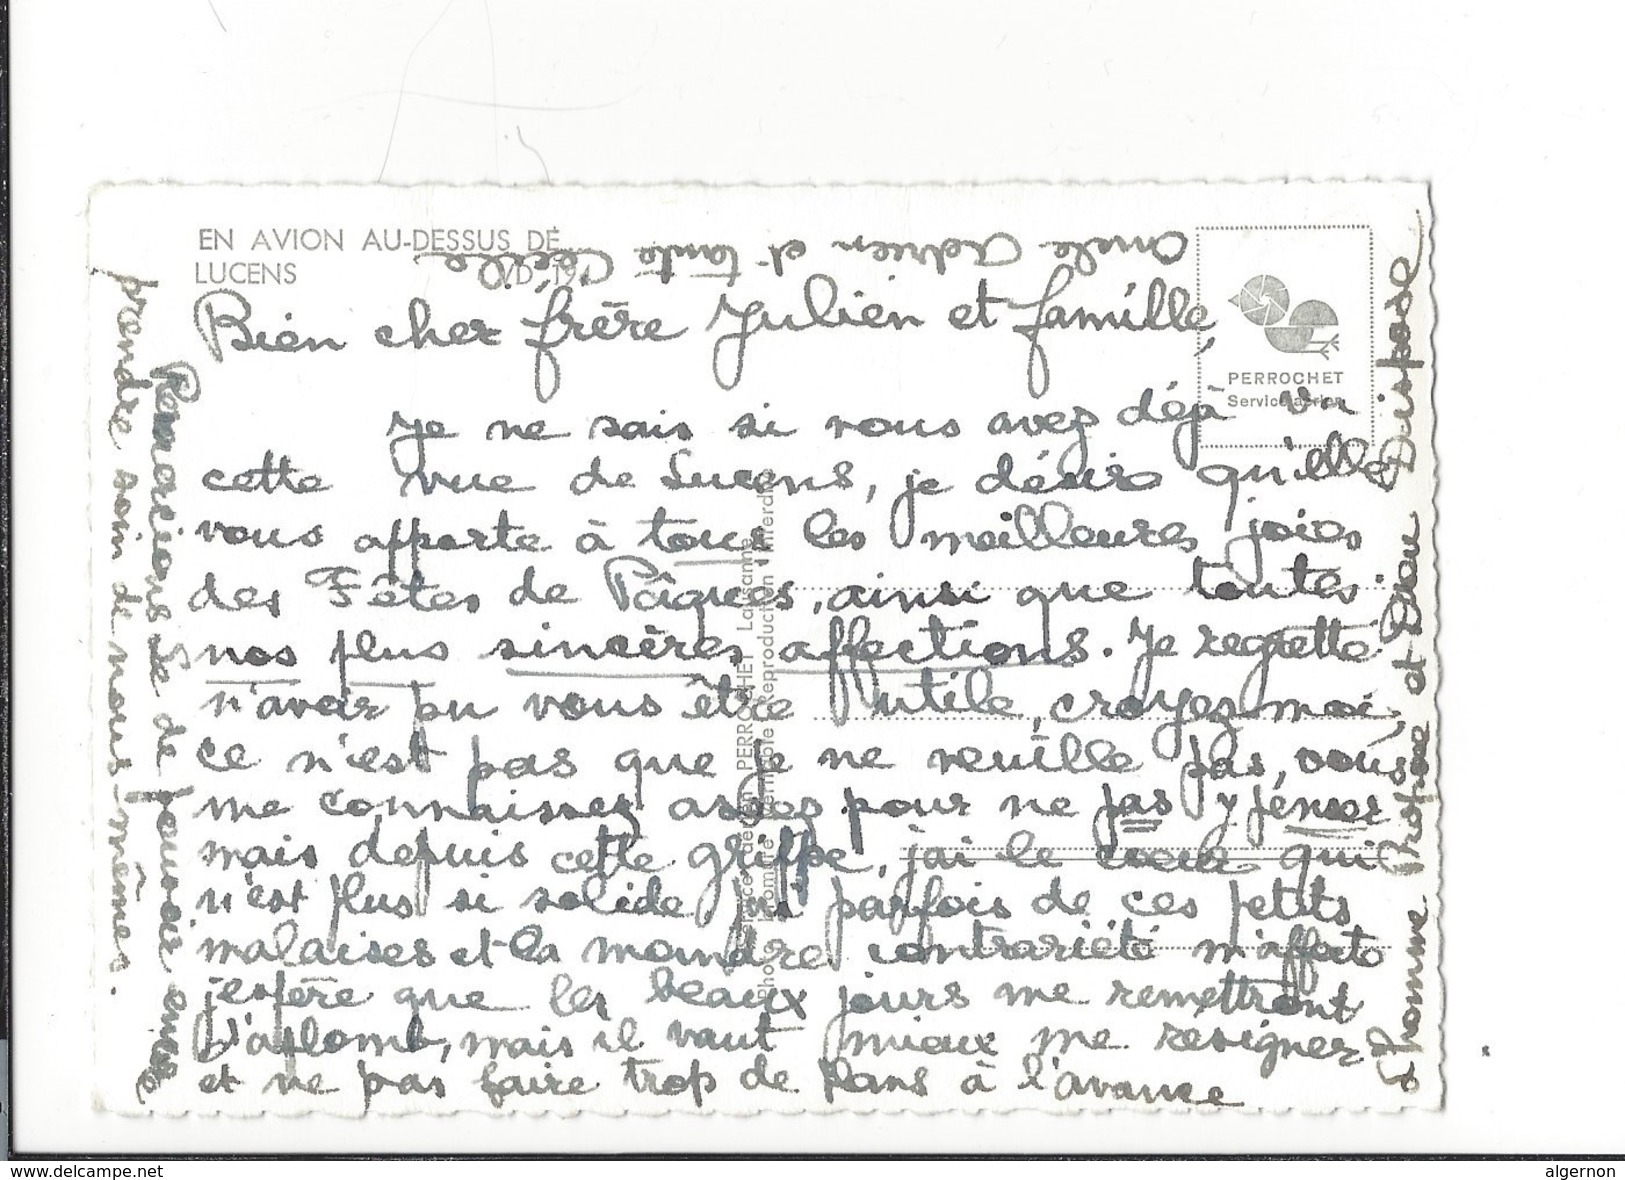 EN AVION AU-DESSUS DE
LUCENS
PERROCHET
Service aérien
Bien cher frère Julien et famille,
Je ne sais si vous avez déjà vu
cette vue de Lucens, je désire qu'elle
vous apporte à tous les meilleures joies
des Fêtes de Pâques, ainsi que toutes
nos plus sincères affections. Je regrette
n'avoir pu vous être utile, croyez-moi,
ce n'est pas que je ne veuille pas, vous
me connaissez assez pour ne pas y penser
mais depuis cette grippe, j'ai le coeur qui
n'est plus si solide. j'ai parfois de ces petits
malaises et la moindre contrariété m'affecte
j'espère que les beaux jours me remettront
d'aplomb, mais il vaut mieux me resigner
et ne pas faire trop de plans à l'avance
Remercions-le de pouvoir encore
prendre soin de nous-mêmes.
L'homme Propose et Dieu Dispose
Oncle Adrien et tante Cécile
PERROCHET Lausanne
Reproduction interdite
delcampe.net
algernon